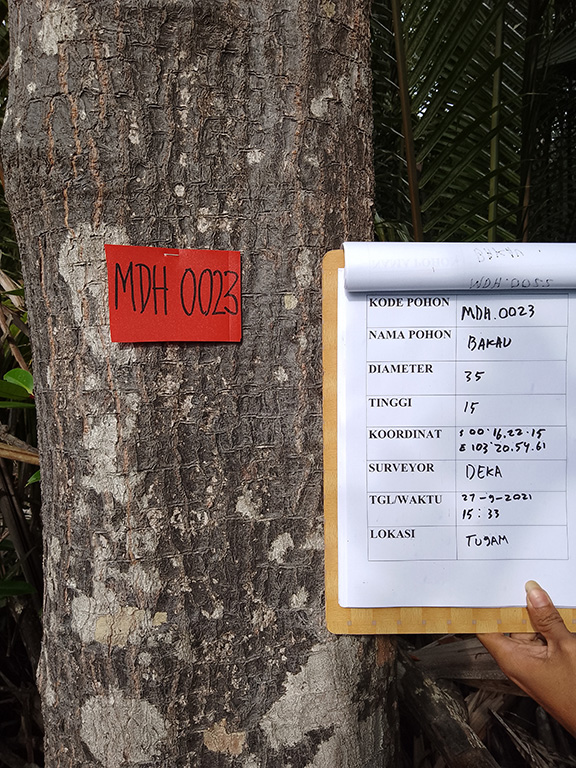 MDH 0023
KODE POHON MDH.0023
NAMA POHON BAKAU
DIAMETER 35
TINGGI 15
KOORDINAT S 00°16.22.15
E 103°20.54.61
SURVEYOR DEKA
TGL/WAKTU 27-9-2021
15:33
LOKASI TUGAM